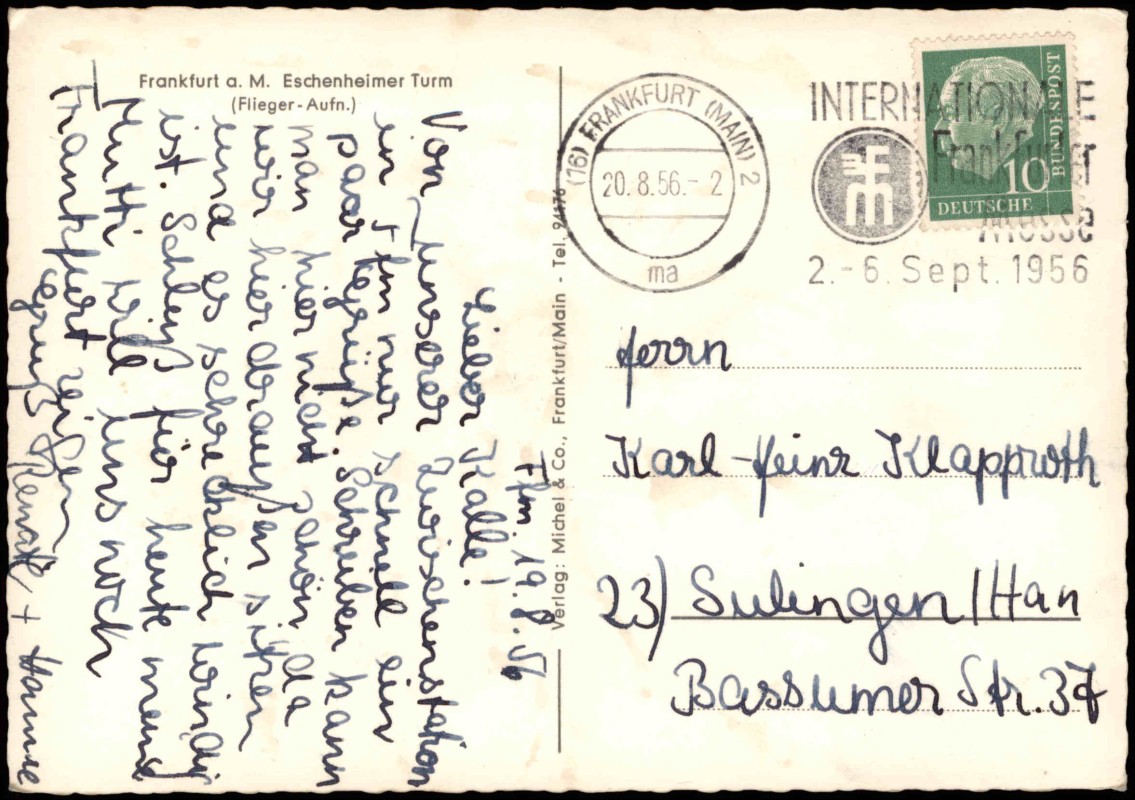 Frankfurt a. M. Eschenheimer Turm
(Flieger-Aufn.)
Ffm. 19.8.56
Lieber Kalle!
Von unserer Zwischenstation
in Ffm nur schnell ein
paar Grüße. Schreiben kann
man hier nicht schön da
wir hier draußen sitzen
und es schrecklich windig
ist. Schluß für heute
Mutti will uns noch
Frankfurt zeigen
Gruß Renate + Hanne
Verlag: Michel & Co., Frankfurt/Main - Tel. 94176
(16) FRANKFURT (MAIN) 2
20.8.56.- 2
ma
INTERNATIONALE
Frankfurter
Messe
2.-6. Sept. 1956
10
DEUTSCHE
BUNDESPOST
Herrn
Karl-Heinz Klapproth
23) Sulingen/Han
Bassumer Str. 37